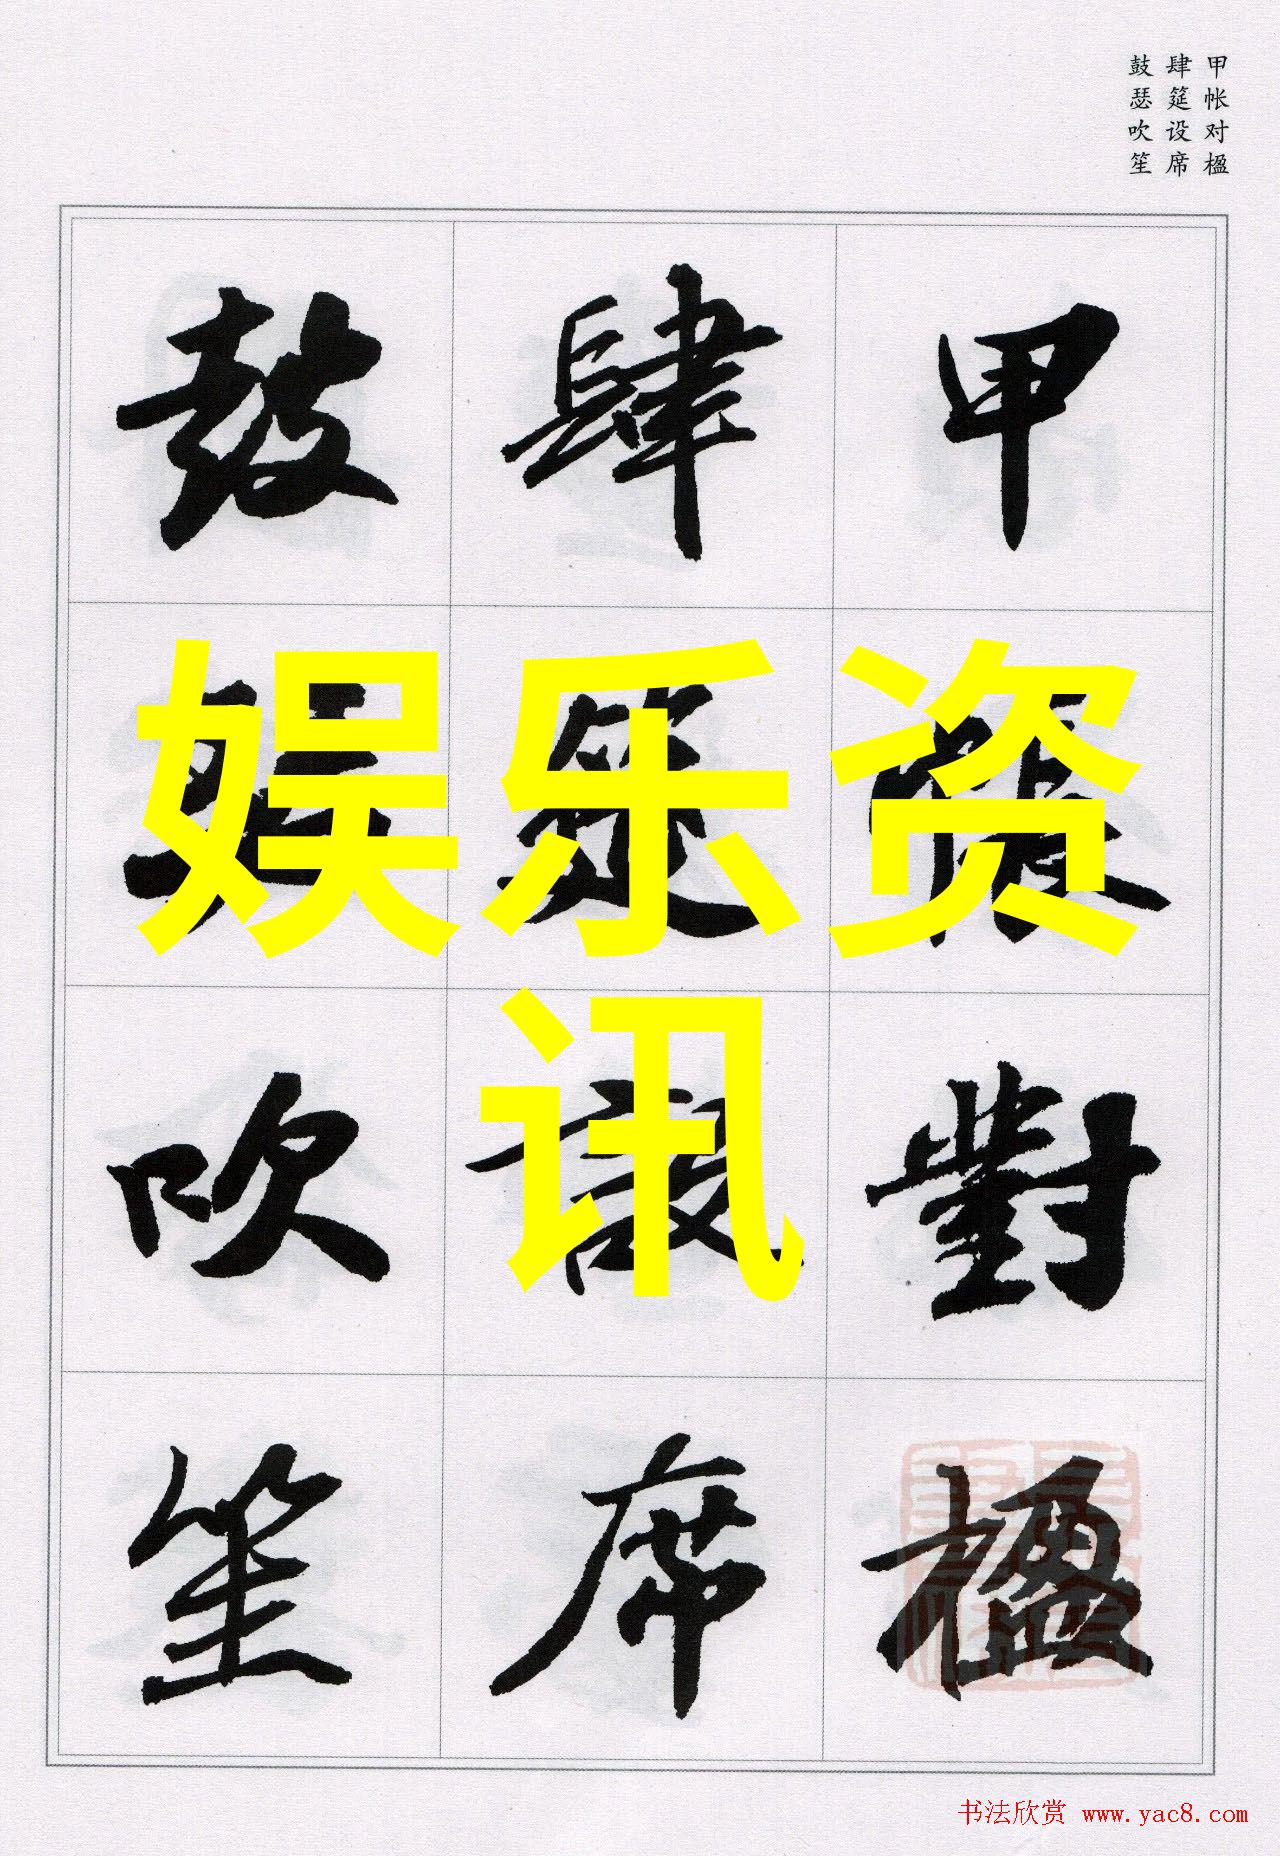 甲帐对楹
肆筵设席
鼓瑟吹笙
甲帳對楹
肆筵設席
鼓瑟吹笙
娱乐资
讯
书法欣赏 www.yac8.com